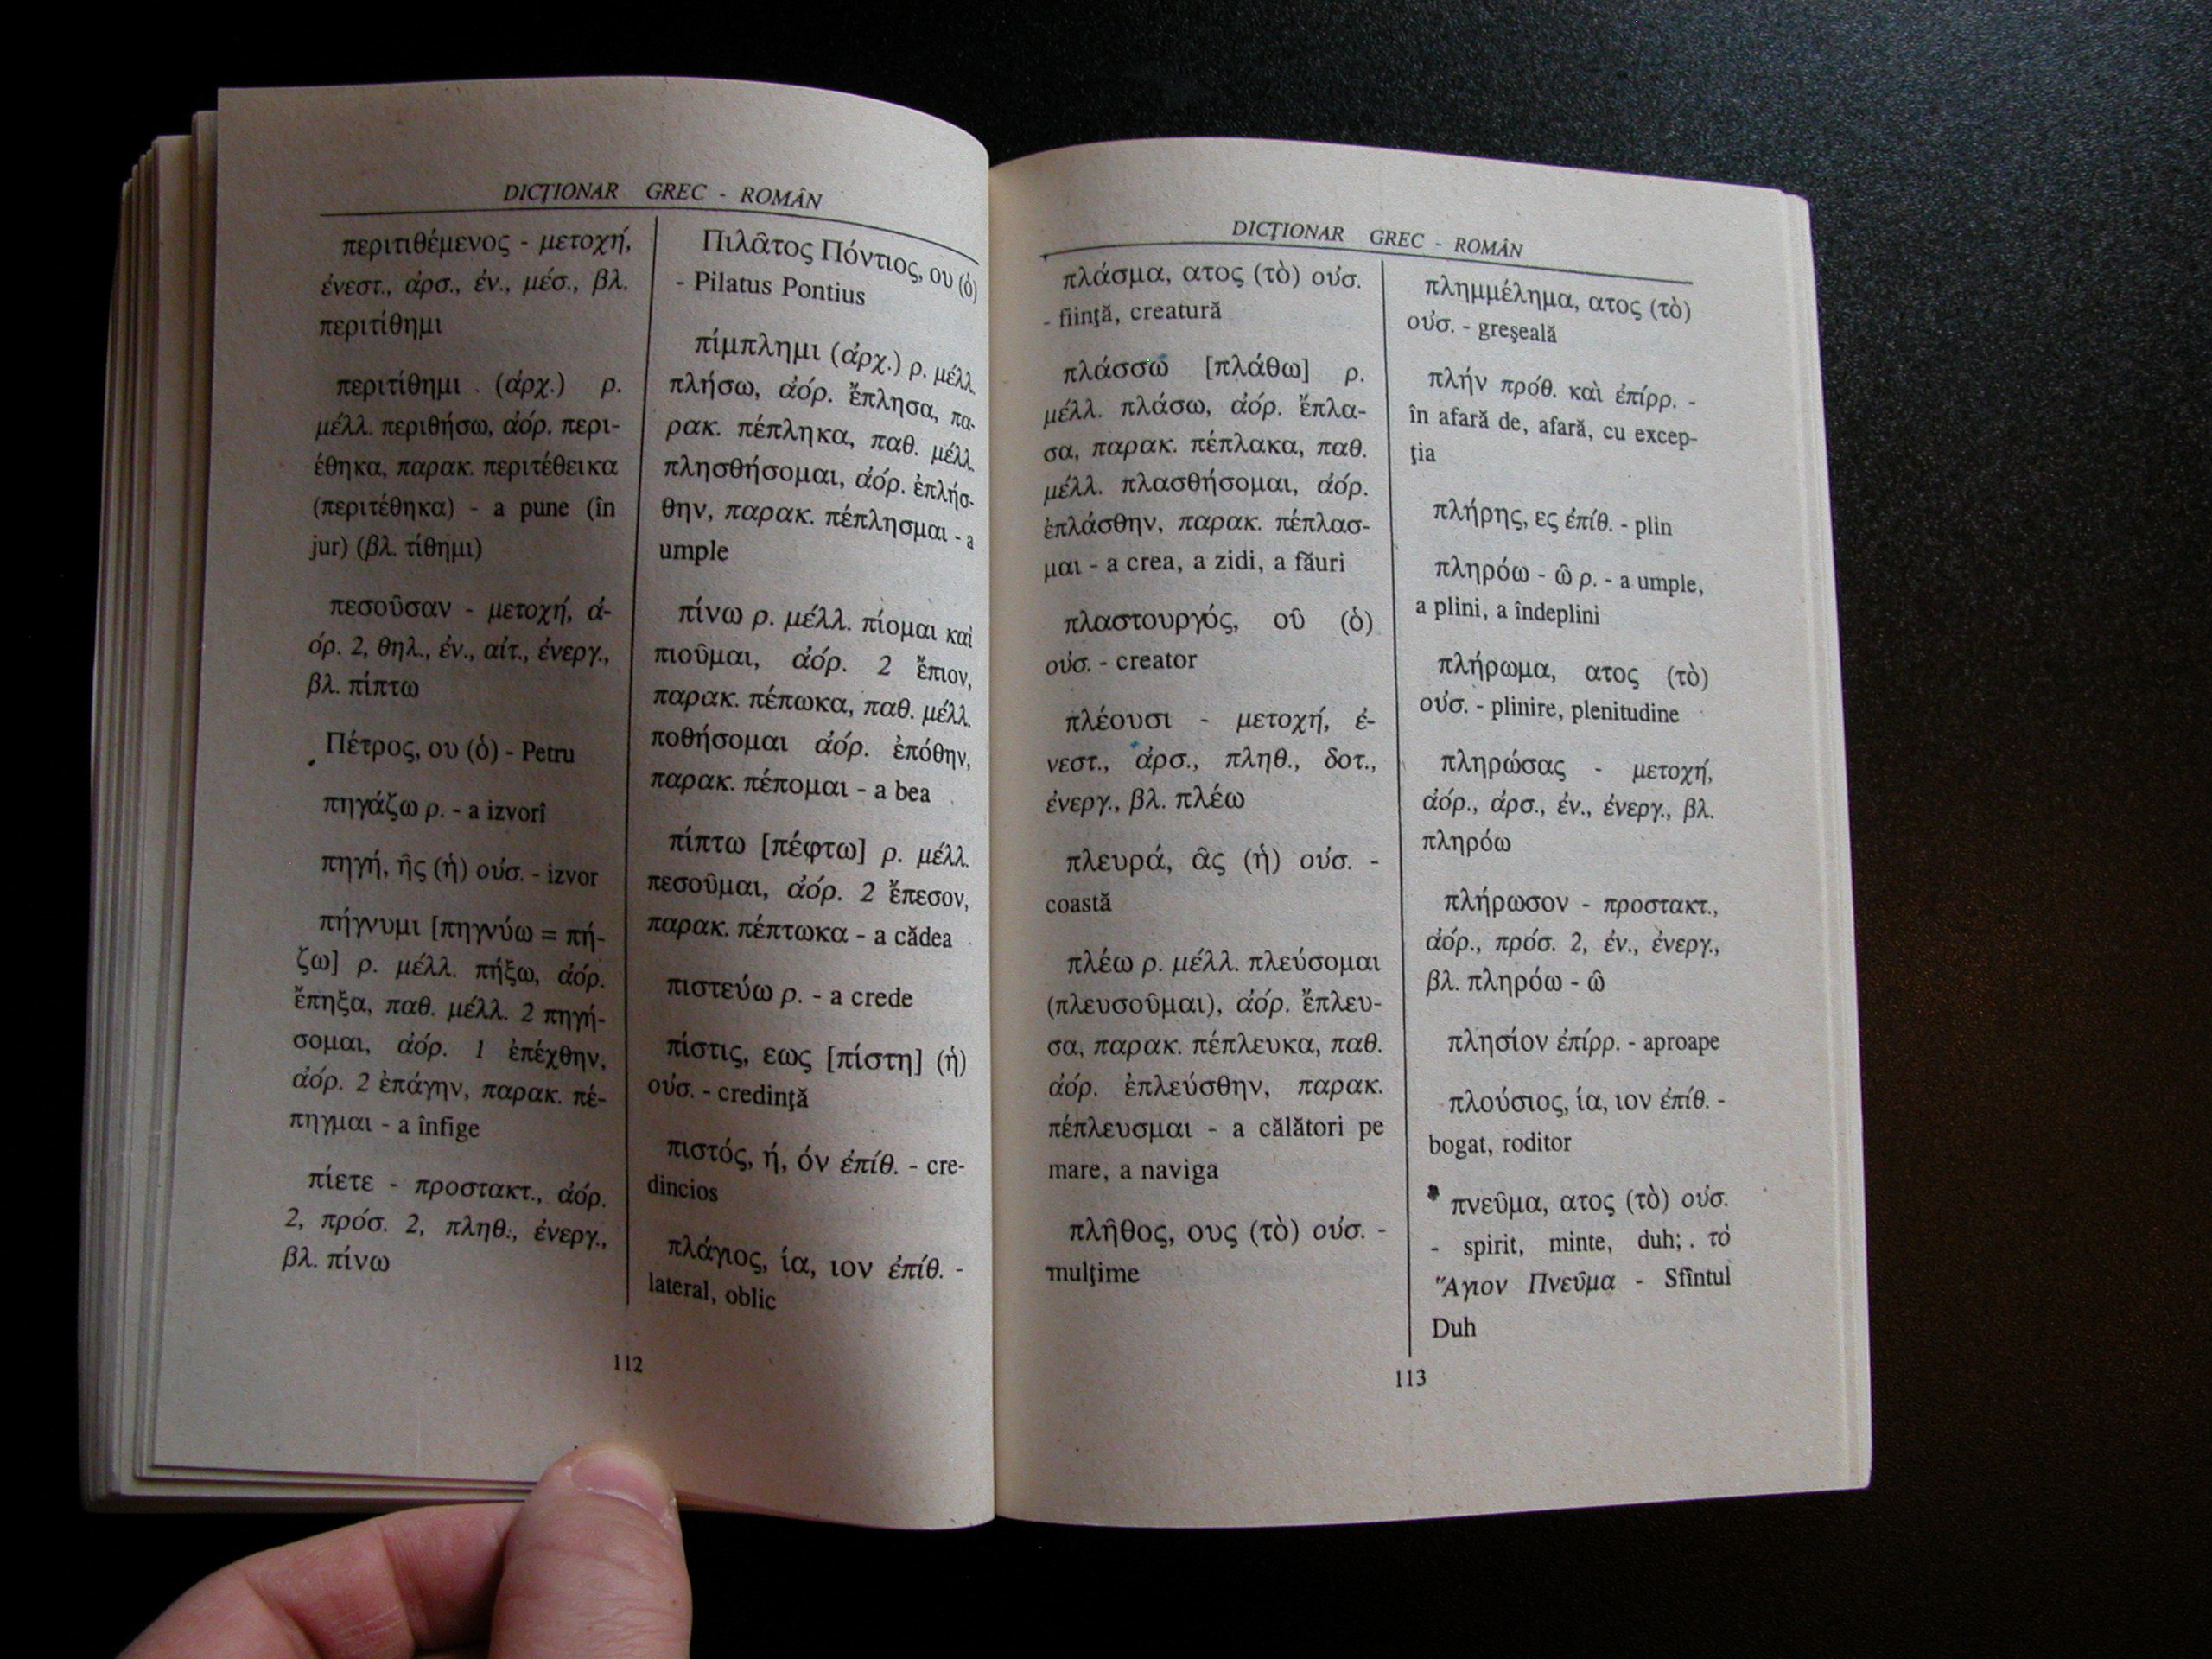 DICŢIONAR GREC - ROMÂN
περιτιθέμενος - μετοχή,
ἐνεστ., ἀρσ., ἐν., μέσ., βλ.
περιτίθημι
περιτίθημι (ἀρχ.) ρ.
μέλλ. περιθήσω, ἀόρ. περι-
έθηκα, παρακ. περιτέθεικα
(περιτέθηκα) - a pune (în
jur) (βλ. τίθημι)
πεσοῦσαν - μετοχή, ἀ-
όρ. 2, θηλ., ἐν., αἰτ., ἐνεργ.,
βλ. πίπτω
Πέτρος, ου (ὁ) - Petru
πηγάζω ρ. - a izvorî
πηγή, ῆς (ἡ) οὐσ. - izvor
πήγνυμι [πηγνύω = πή-
ζω] ρ. μέλλ. πήξω, ἀόρ.
ἔπηξα, παθ. μέλλ. 2 πηγή-
σομαι, ἀόρ. 1 ἐπέχθην,
ἀόρ. 2 ἐπάγην, παρακ. πέ-
πηγμαι - a înfige
πίετε - προστακτ., ἀόρ.
2, πρόσ. 2, πληθ., ἐνεργ.,
βλ. πίνω
Πιλᾶτος Πόντιος, ου (ὁ)
- Pilatus Pontius
πίμπλημι (ἀρχ.) ρ. μέλλ.
πλήσω, ἀόρ. ἔπλησα, πα-
ρακ. πέπληκα, παθ. μέλλ.
πλησθήσομαι, ἀόρ. ἐπλήσ-
θην, παρακ. πέπλησμαι - a
umple
πίνω ρ. μέλλ. πίομαι καὶ
πιοῦμαι, ἀόρ. 2 ἔπιον,
παρακ. πέπωκα, παθ. μέλλ.
ποθήσομαι ἀόρ. ἐπόθην,
παρακ. πέπομαι - a bea
πίπτω [πέφτω] ρ. μέλλ.
πεσοῦμαι, ἀόρ. 2 ἔπεσον,
παρακ. πέπτωκα - a cădea
πιστεύω ρ. - a crede
πίστις, εως [πίστη] (ἡ)
οὐσ. - credinţă
πιστός, ή, όν ἐπίθ. - cre-
dincios
πλάγιος, ία, ιον ἐπίθ. -
lateral, oblic
112
DICŢIONAR GREC - ROMÂN
πλάσμα, ατος (τὸ) οὐσ.
- fiinţă, creatură
πλάσσω [πλάθω] ρ.
μέλλ. πλάσω, ἀόρ. ἔπλα-
σα, παρακ. πέπλακα, παθ.
μέλλ. πλασθήσομαι, ἀόρ.
ἐπλάσθην, παρακ. πέπλασ-
μαι - a crea, a zidi, a făuri
πλαστουργός, οῦ (ὁ)
οὐσ. - creator
πλέουσι - μετοχή, ἐ-
νεστ., ἀρσ., πληθ., δοτ.,
ἐνεργ., βλ. πλέω
πλευρά, ᾶς (ἡ) οὐσ. -
coastă
πλέω ρ. μέλλ. πλεύσομαι
(πλευσοῦμαι), ἀόρ. ἔπλευ-
σα, παρακ. πέπλευκα, παθ.
ἀόρ. ἐπλεύσθην, παρακ.
πέπλευσμαι - a călători pe
mare, a naviga
πλῆθος, ους (τὸ) οὐσ. -
mulţime
πλημμέλημα, ατος (τὸ)
οὐσ. - greşeală
πλήν πρόθ. καὶ ἐπίρρ. -
în afară de, afară, cu excep-
ţia
πλήρης, ες ἐπίθ. - plin
πληρόω - ῶ ρ. - a umple,
a plini, a îndeplini
πλήρωμα, ατος (τὸ)
οὐσ. - plinire, plenitudine
πληρώσας - μετοχή,
ἀόρ., ἀρσ., ἐν., ἐνεργ., βλ.
πληρόω
πλήρωσον - προστακτ.,
ἀόρ., πρόσ. 2, ἐν., ἐνεργ.,
βλ. πληρόω - ῶ
πλησίον ἐπίρρ. - aproape
πλούσιος, ία, ιον ἐπίθ. -
bogat, roditor
πνεῦμα, ατος (τὸ) οὐσ.
- spirit, minte, duh; τό
Ἅγιον Πνεῦμα - Sfîntul
Duh
113